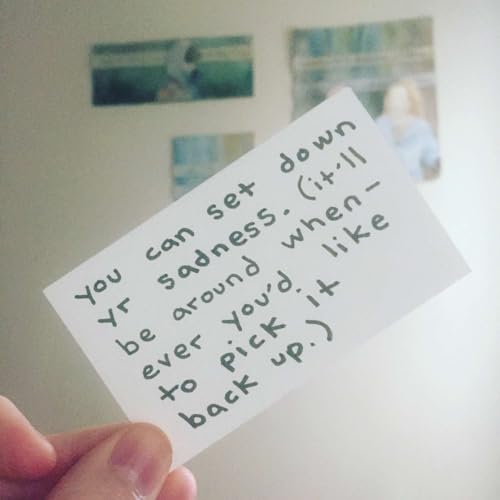 you can set down
yr sadness. (it'll
be around when-
ever you'd like
to pick it
back up.)